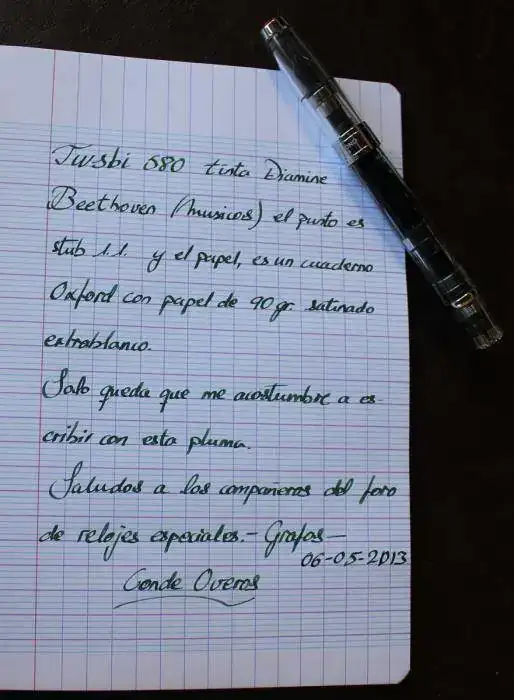 Twsbi 580 tinta Diamine
Beethoven (musicos) el punto es
stub 1.1. y el papel, es un cuaderno
Oxford con papel de 90 gr. satinado
extrablanco.
Solo queda que me acostumbre a es-
cribir con esta pluma.
Saludos a los compañeros del foro
de relojes especiales.- Grafos-
06-05-2013
Conde Overos